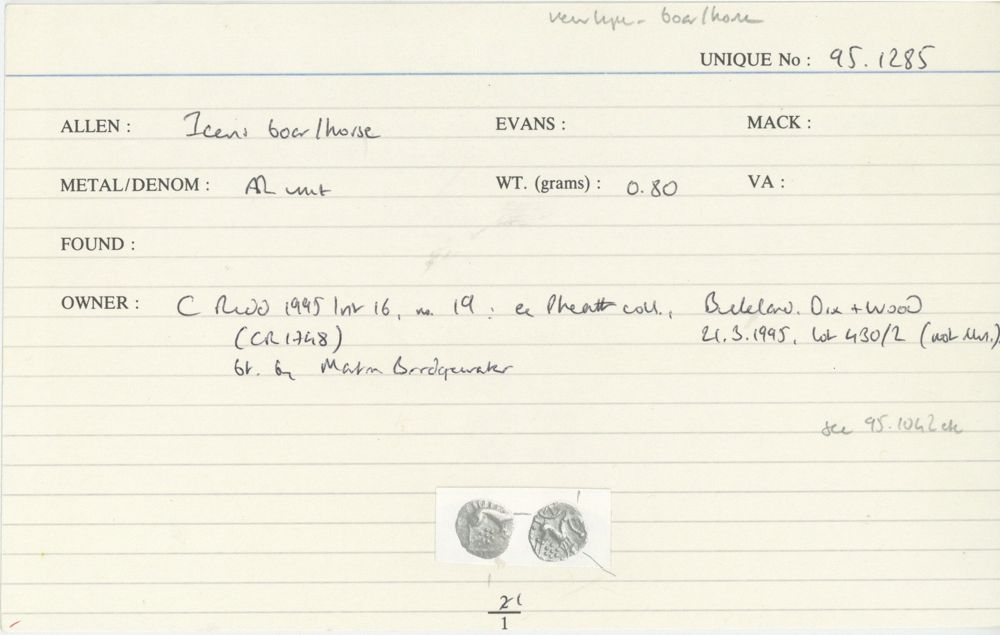 new type - boar/horse
UNIQUE No : 95.1285
ALLEN : Iceni boar/horse EVANS : MACK :
METAL/DENOM : AR unit WT. (grams) : 0.80 VA :
FOUND :
OWNER : C Rudd 1995 list 16, no. 19 : ex coll., Buckland. Dix + Wood
(CR1748) 21.3.1995, lot 430/2 (not illus.)
bt. by Martin Bridgewater
see 95.1042 etc
21
1